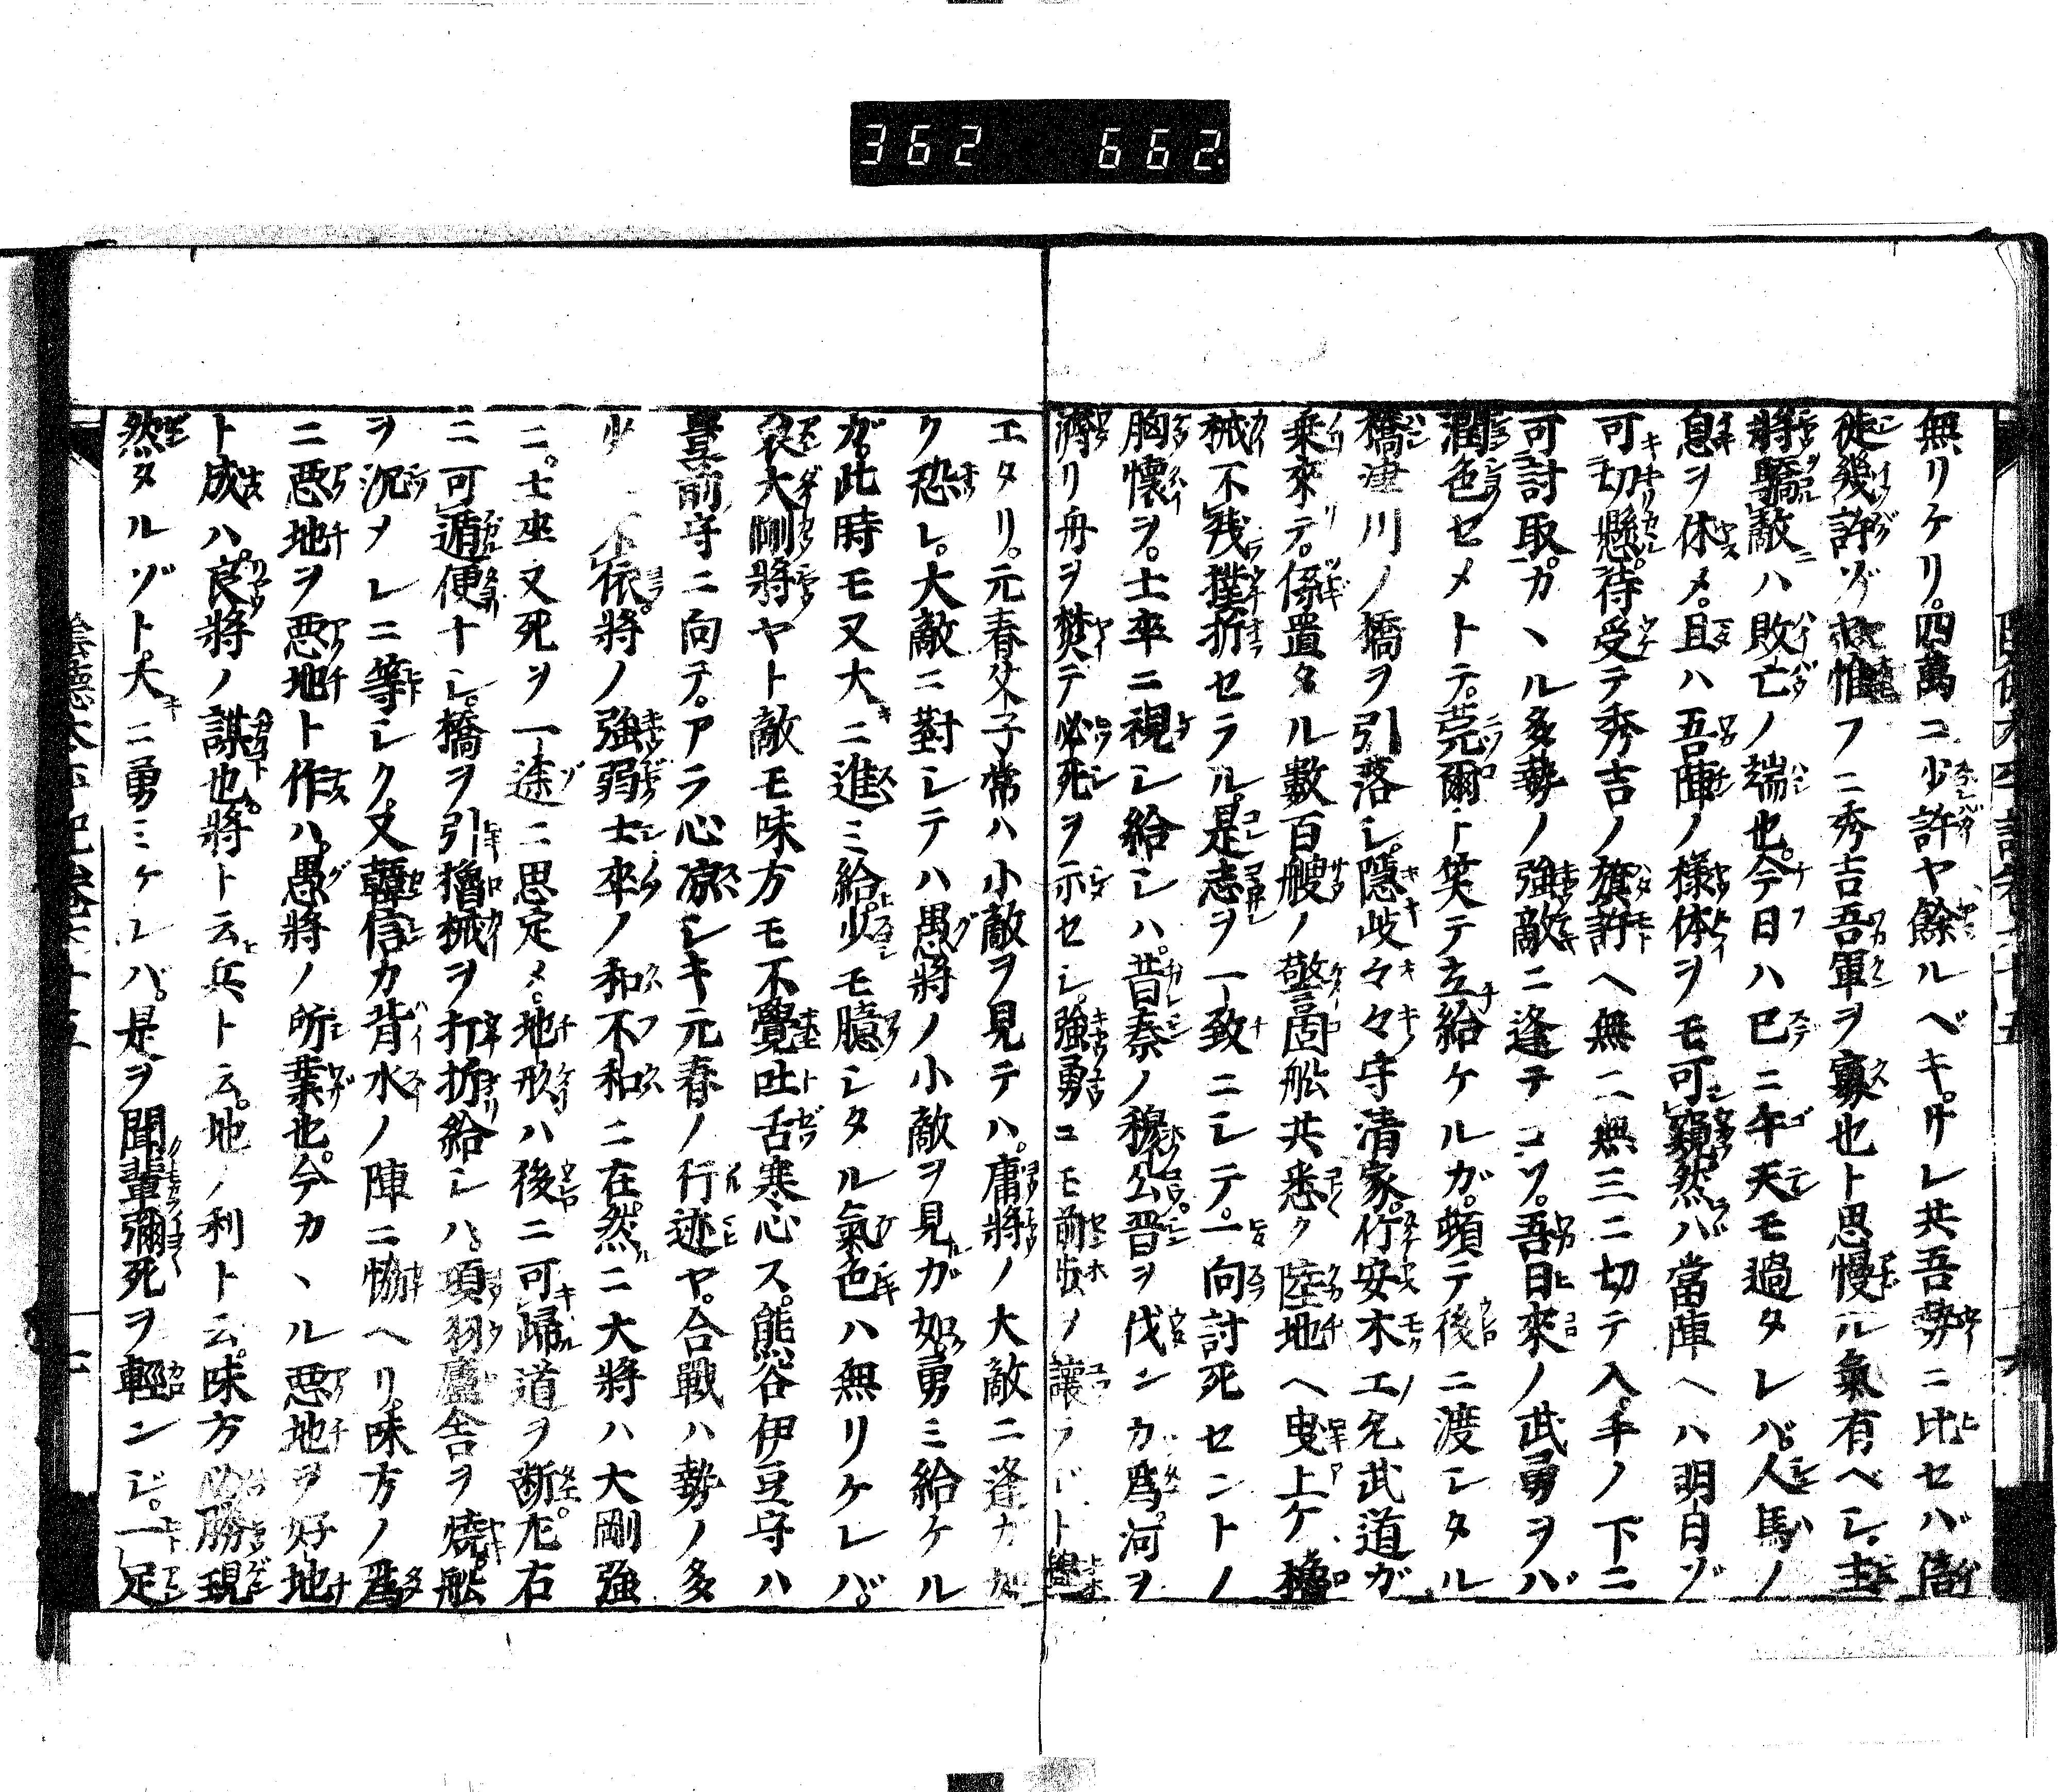 362 662.
無リケリ。四萬コ少許ヤ餘ルベキ。サレ共吾勢ニ比セバ倍
徙幾許ゾ惟フニ秀吉吾軍ヲ寡也ト思慢ル氣有ベシ。主
將驕敵ハ敗亡ノ端也。今日ハ巳ニ午天モ過タレバ。人馬ノ
息ヲ休メ。且ハ吾陣ノ様体ヲモ可窺。然ハ當陣ヘハ明日ゾ
可切懸。待受テ秀吉ノ旗許ヘ無二無三ニ切テ入。手ノ下ニ
可討取。カヽル多勢ノ強敵ニ逢テコソ。吾日來ノ武勇ヲバ
潤色セメトテ。莞爾ト笑テ立給ケルガ。頓テ後ニ渡シタル
橋津川ノ橋ヲ引落シ。隱岐々々守清家。佐安木工允武道ガ
乗來テ。係置タル數百艘ノ警固舩共悉ク陸地ヘ曳上ケ櫓
械不殘撲折セラル。是志ヲ一致ニシテ。一向討死セントノ
胸懷ヲ。士卒ニ視シ給シハ。昔秦ノ穆公晋ヲ伐ンカ爲。河ヲ
濟リ舟ヲ焚テ必死ヲ示セシ。強勇コモ前歩ノ讓ラジト
エタリ。元春父子常ハ小敵ヲ見テハ。庸將ノ大敵ニ逢カ如
ク恐レ。大敵ニ對シテハ愚將ノ小敵ヲ見ガ如勇ミ給ケル
ガ。此時モ又大ニ進ミ給。少モ臆シタル氣色ハ無リケレバ。
哀大剛將ヤト敵モ味方モ不覺吐舌寒心ス。熊谷伊豆守ハ
豊前守ニ向テ。アラ心凉シキ元春ノ行迹ヤ。合戰ハ勢ノ多
少 不依。將ノ強弱士卒ノ和不和ニ在。然ニ大將ハ大剛強
ニ。士卒又死ヲ一途ニ思定メ。地形ハ後ニ可歸道ヲ断。尤右
ニ可遁便ナシ。橋ヲ引櫓械ヲ打折給シハ。項羽廬舎ヲ燒。舩
ヲ沉メシニ等シク。又韓信カ背水ノ陣ニ恊ヘリ。味方ノ爲
ニ悪地ヲ悪地ト作ハ。愚將ノ所業也。今カヽル悪地ヲ好地
ト成ハ。良將ノ謀也。將ト云兵ト云。地ノ利ト云。味方必勝現
然タルゾト。大ニ勇ミケレバ。是ヲ聞輩彌死ヲ輕ンジ。一足